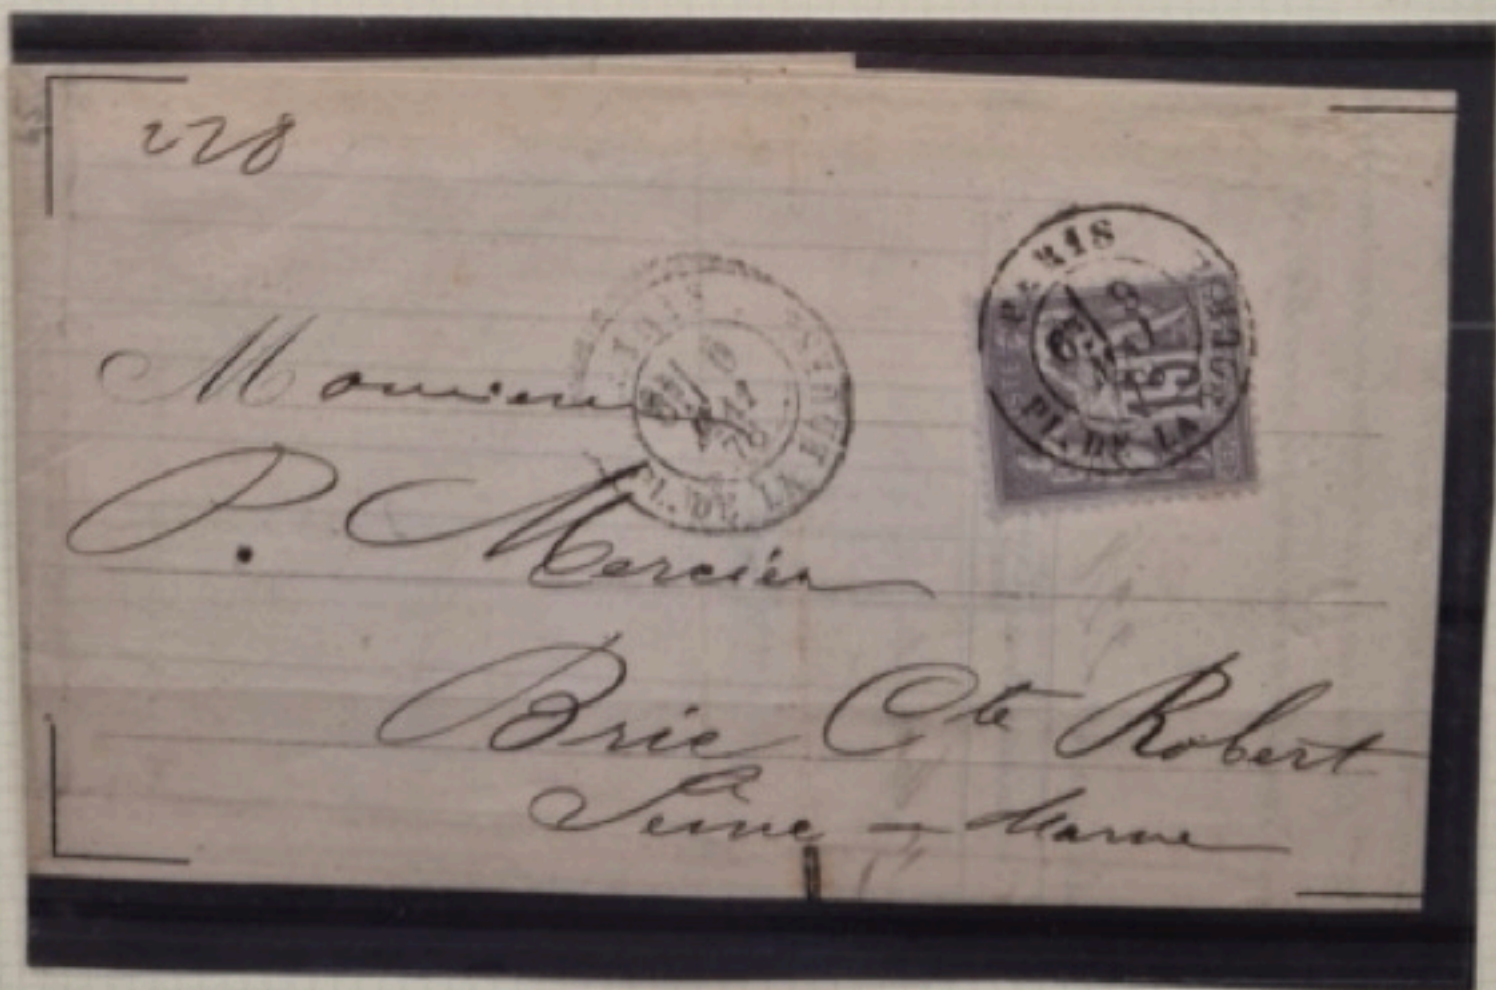 228
PARIS
PL. DE LA BOURSE
15
PARIS
PL. DE LA BOURSE
Monsieur
P. Mercier
Brie Cte Robert
Seine - Marne